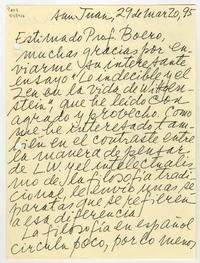 San Juan, 29 de marzo, 95
Estimado Prof. Boero,
muchas gracias por en-
viarme su interesante
ensayo "Lo indecible y el
Zen en la vida de Wittgen-
stein", que he leído con
agrado y provecho. Como
me ha interesado tam-
bién en el contraste entre
la manera de pensar
de L.W. y el intelectualis-
mo de la filosofía tradi-
cional, le envío unas se-
paratas que se refieren
a esa diferencia.
La filosofía en español
circula poco, por lo menos,